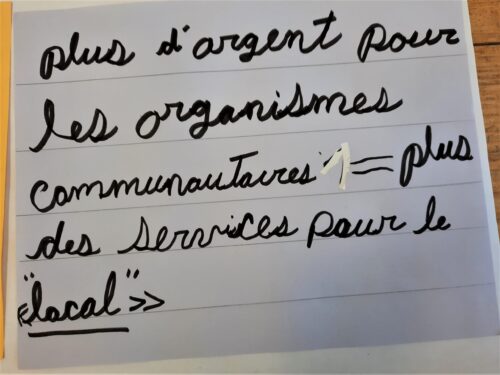 plus d'argent pour
les organismes
communautaires = plus
des services pour le
«"local"»